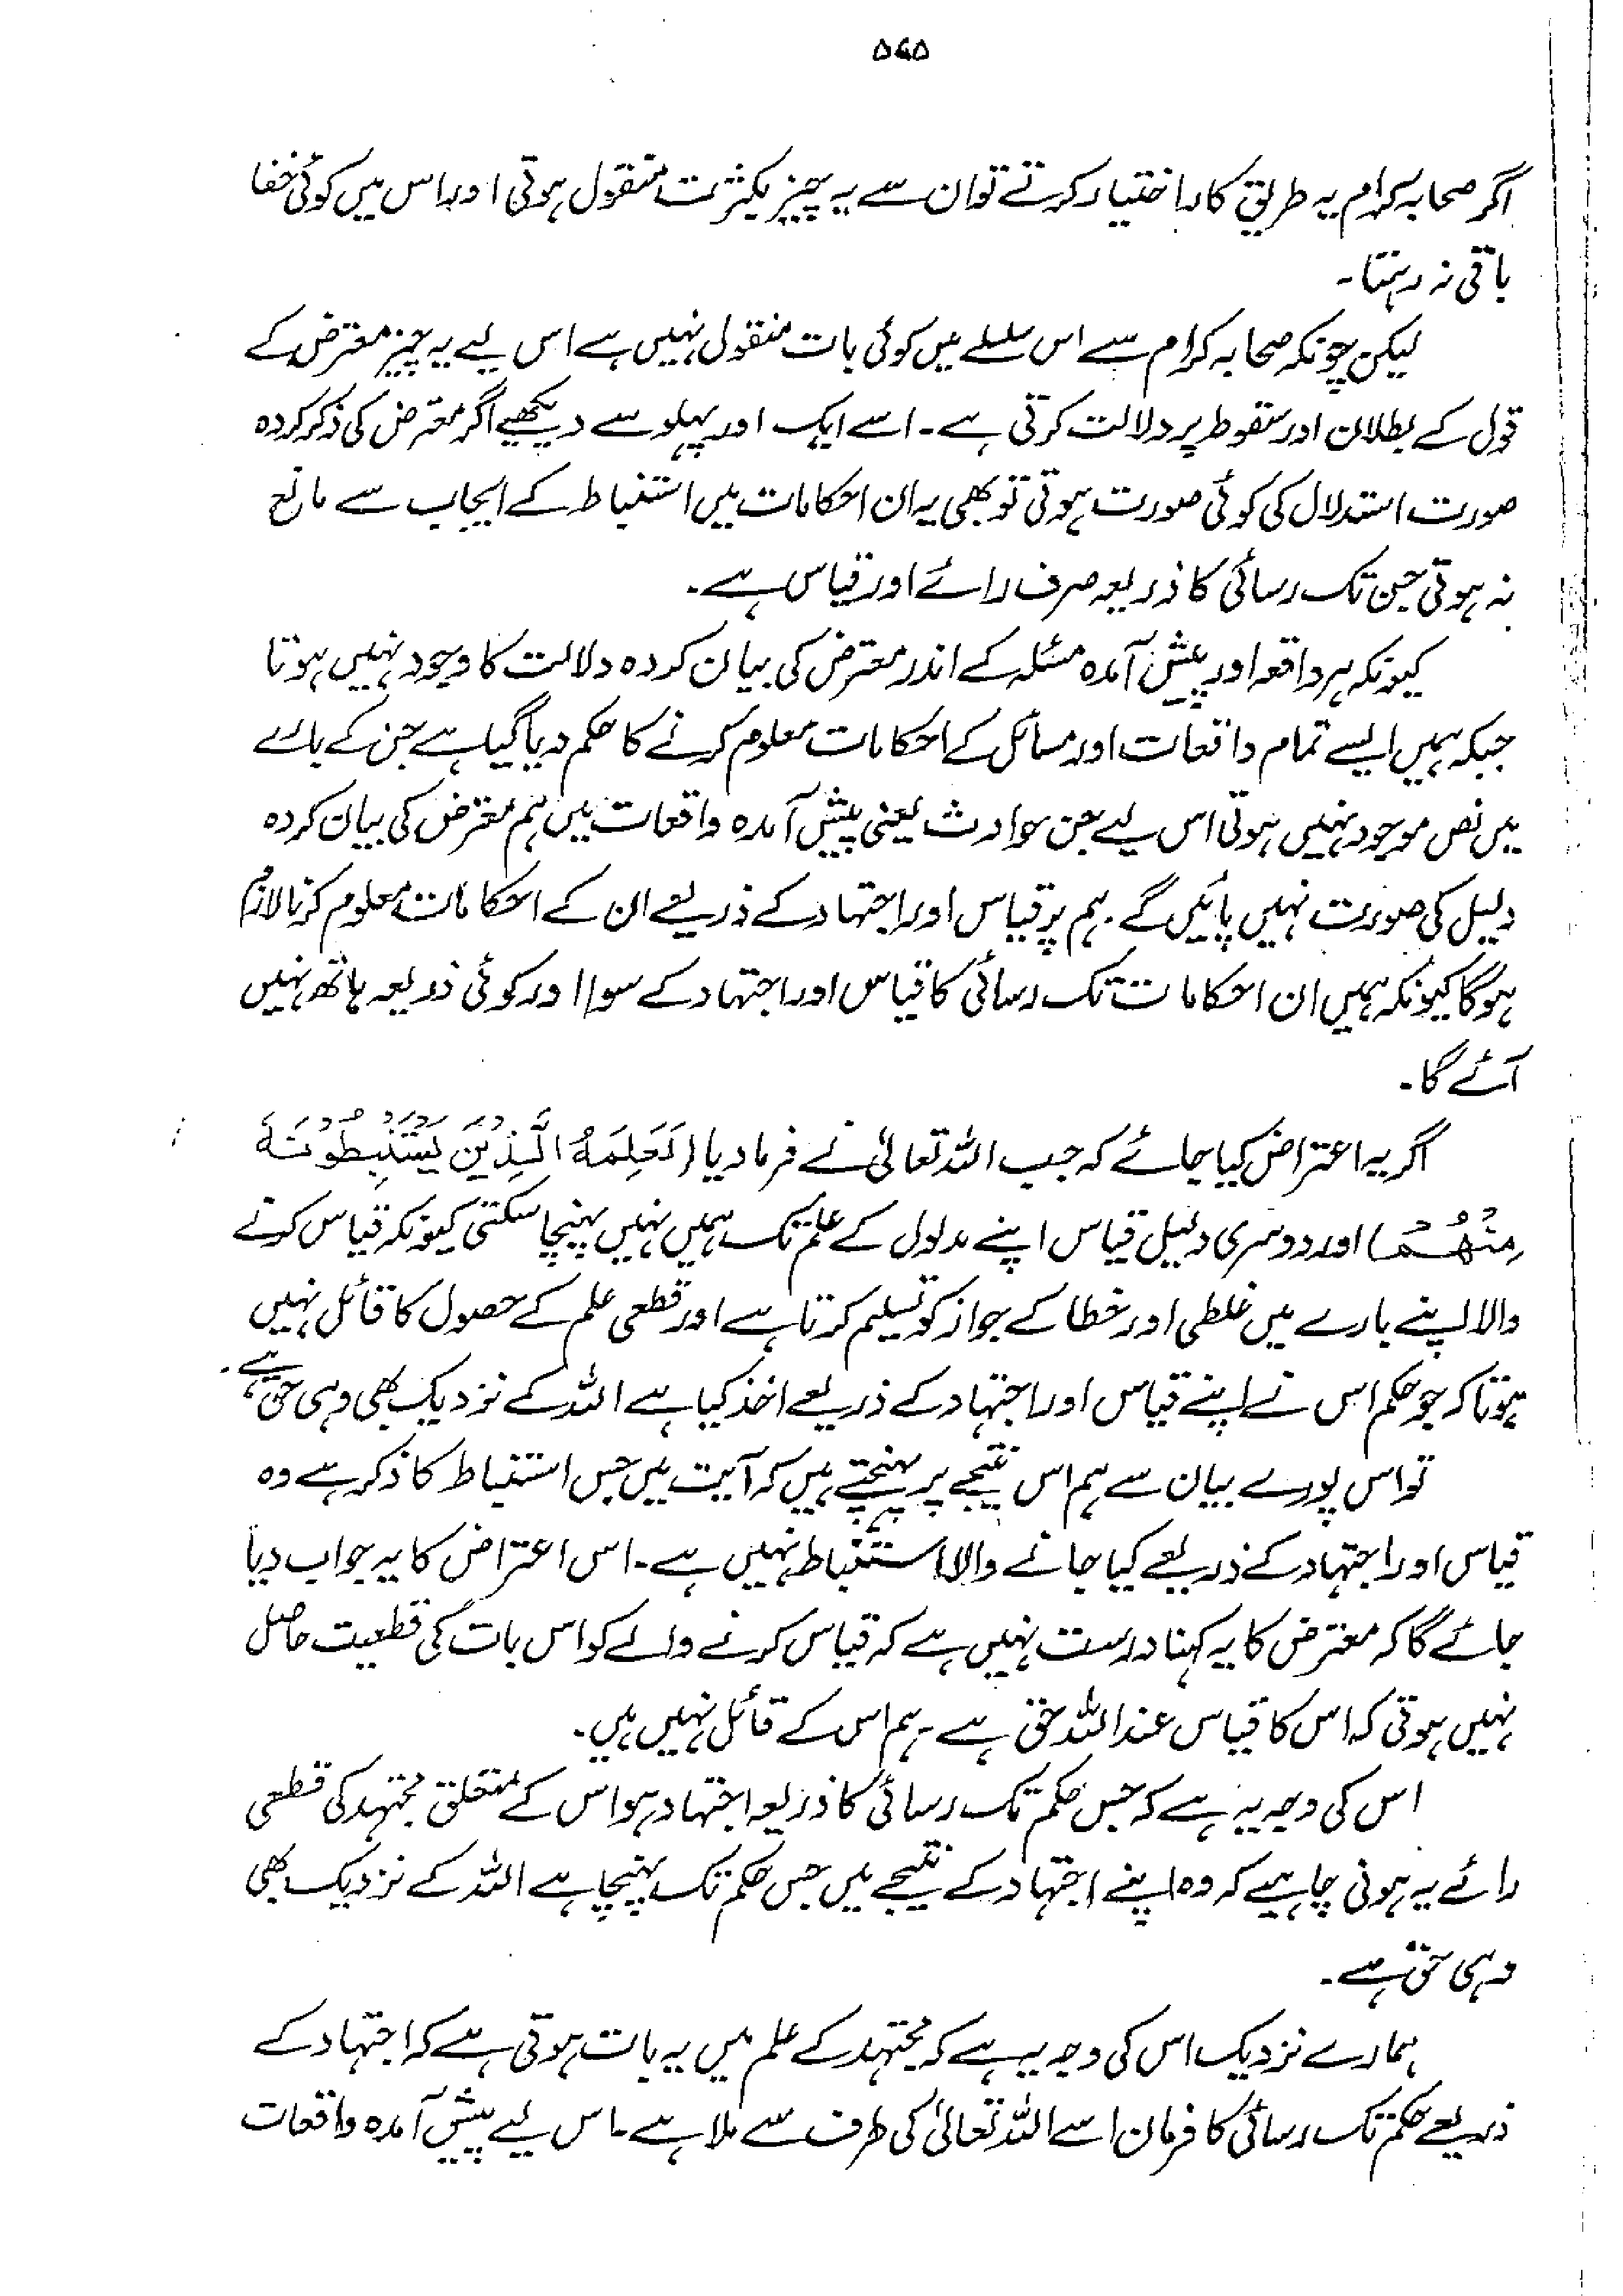 ۵۷۵
اگر صحابہ کرام یہ طریق کار اختیار کرتے تو ان سے یہ چیز بکثرت منقول ہوتی اور اس میں کوئی خفا
باقی نہ رہتا۔
لیکن چونکہ صحابہ کرام سے اس سلسلے میں کوئی بات منقول نہیں ہے اس لیے یہ چیز معترض کے
قول کے بطلان اور سقوط پر دلالت کرتی ہے۔ اسے ایک اور پہلو سے دیکھیے اگر معترض کی ذکر کردہ
صورت استدلال کی کوئی صورت ہوتی تو بھی یہ ان احکامات میں استنباط کے ایجاب سے مانع
نہ ہوتی جن تک رسائی کا ذریعہ صرف رائے اور قیاس ہے۔
کیونکہ ہر واقعہ اور پیش آمدہ مسئلہ کے اندر معترض کی بیان کردہ دلالت کا وجود نہیں ہوتا
جبکہ ہمیں ایسے تمام واقعات اور مسائل کے احکامات معلوم کرنے کا حکم دیا گیا ہے جن کے بارے
میں نص موجود نہیں ہوتی اس لیے جن حوادث یعنی پیش آمدہ واقعات میں ہم معترض کی بیان کردہ
دلیل کی صورت نہیں پائیں گے۔ ہم پر قیاس اور اجتہاد کے ذریعے ان کے احکامات معلوم کرنا لازم
ہوگا کیونکہ ہمیں ان احکامات تک رسائی کا قیاس اور اجتہاد کے سوا اور کوئی ذریعہ ہاتھ نہیں
آئے گا۔
اگر یہ اعتراض کیا جائے کہ جب اللہ تعالیٰ نے فرما دیا (لَعَلِمَهُ الَّذِيْنَ يَسْتَنْۢبِطُوْنَهٗ
مِنْهُمْ) اور دوسری دلیل قیاس اپنے مدلول کے علم تک ہمیں نہیں پہنچا سکتی کیونکہ قیاس کرنے
والا اپنے بارے میں غلطی اور خطا کے جواز کو تسلیم کرتا ہے اور قطعی علم کے حصول کا قائل نہیں
ہوتا کہ جو حکم اس نے اپنے قیاس اور اجتہاد کے ذریعے اخذ کیا ہے اللہ کے نزدیک بھی وہی حق ہے،
تو اس پورے بیان سے ہم اس نتیجے پر پہنچتے ہیں کہ آیت میں جس استنباط کا ذکر ہے وہ
قیاس اور اجتہاد کے ذریعے کیا جانے والا استنباط نہیں ہے۔ اس اعتراض کا یہ جواب دیا
جائے گا کہ معترض کا یہ کہنا درست نہیں ہے کہ قیاس کرنے والے کو اس بات کی قطعیت حاصل
نہیں ہوتی کہ اس کا قیاس عند اللہ حق ہے۔ ہم اس کے قائل نہیں ہیں۔
اس کی وجہ یہ ہے کہ جس حکم تک رسائی کا ذریعہ اجتہاد ہو اس کے متعلق مجتہد کی قطعی
رائے یہ ہونی چاہیے کہ وہ اپنے اجتہاد کے نتیجے میں جس حکم تک پہنچا ہے اللہ کے نزدیک بھی
وہی حق ہے۔
ہمارے نزدیک اس کی وجہ یہ ہے کہ مجتہد کے علم میں یہ بات ہوتی ہے کہ اجتہاد کے
ذریعے حکم تک رسائی کا فرمان اسے اللہ تعالیٰ کی طرف سے ملا ہے۔ اس لیے پیش آمدہ واقعات